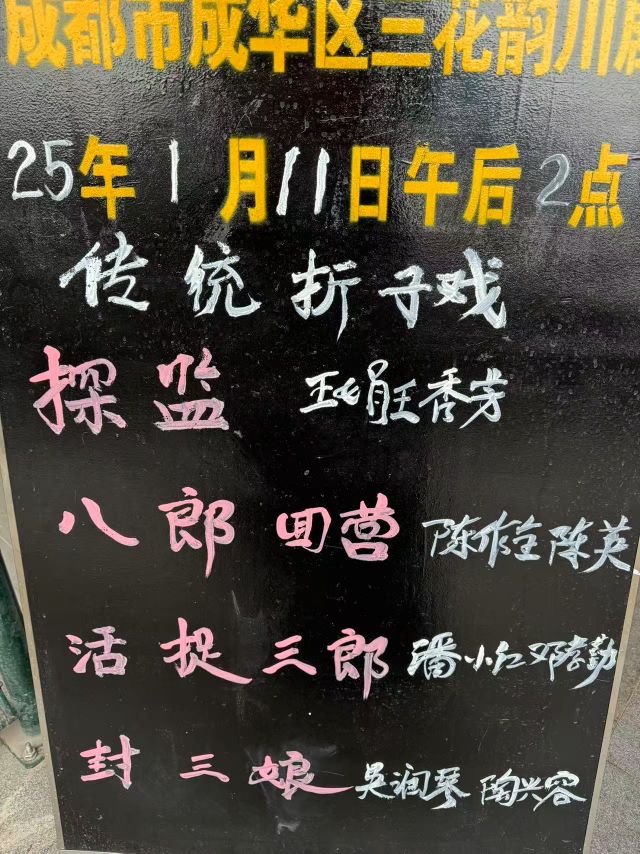 成都市成华区三花韵川剧
25年1月11日午后2点
传统折子戏
探监 王娟王香芳
八郎回营 陈作全陈英
活捉三郎 潘小红邓孝勤
封三娘 吴润琴陶兴容